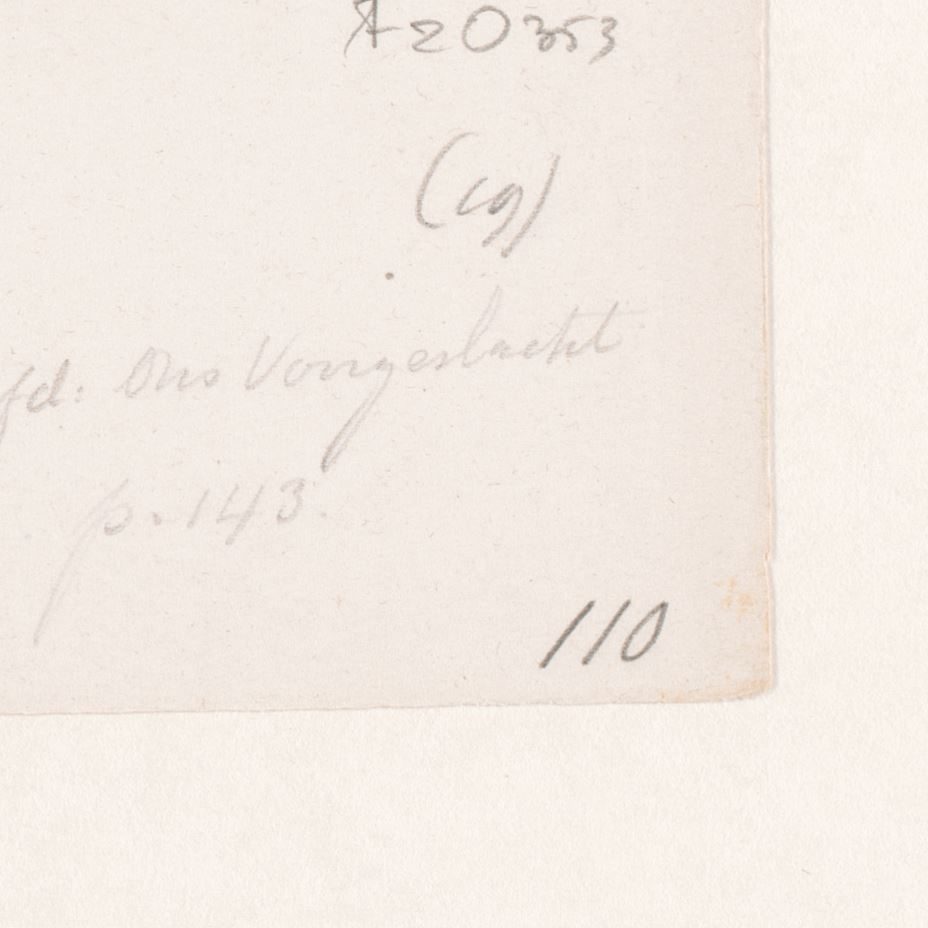 A20353
(cg)
fd: Ons Voorgeslacht
p. 143.
110